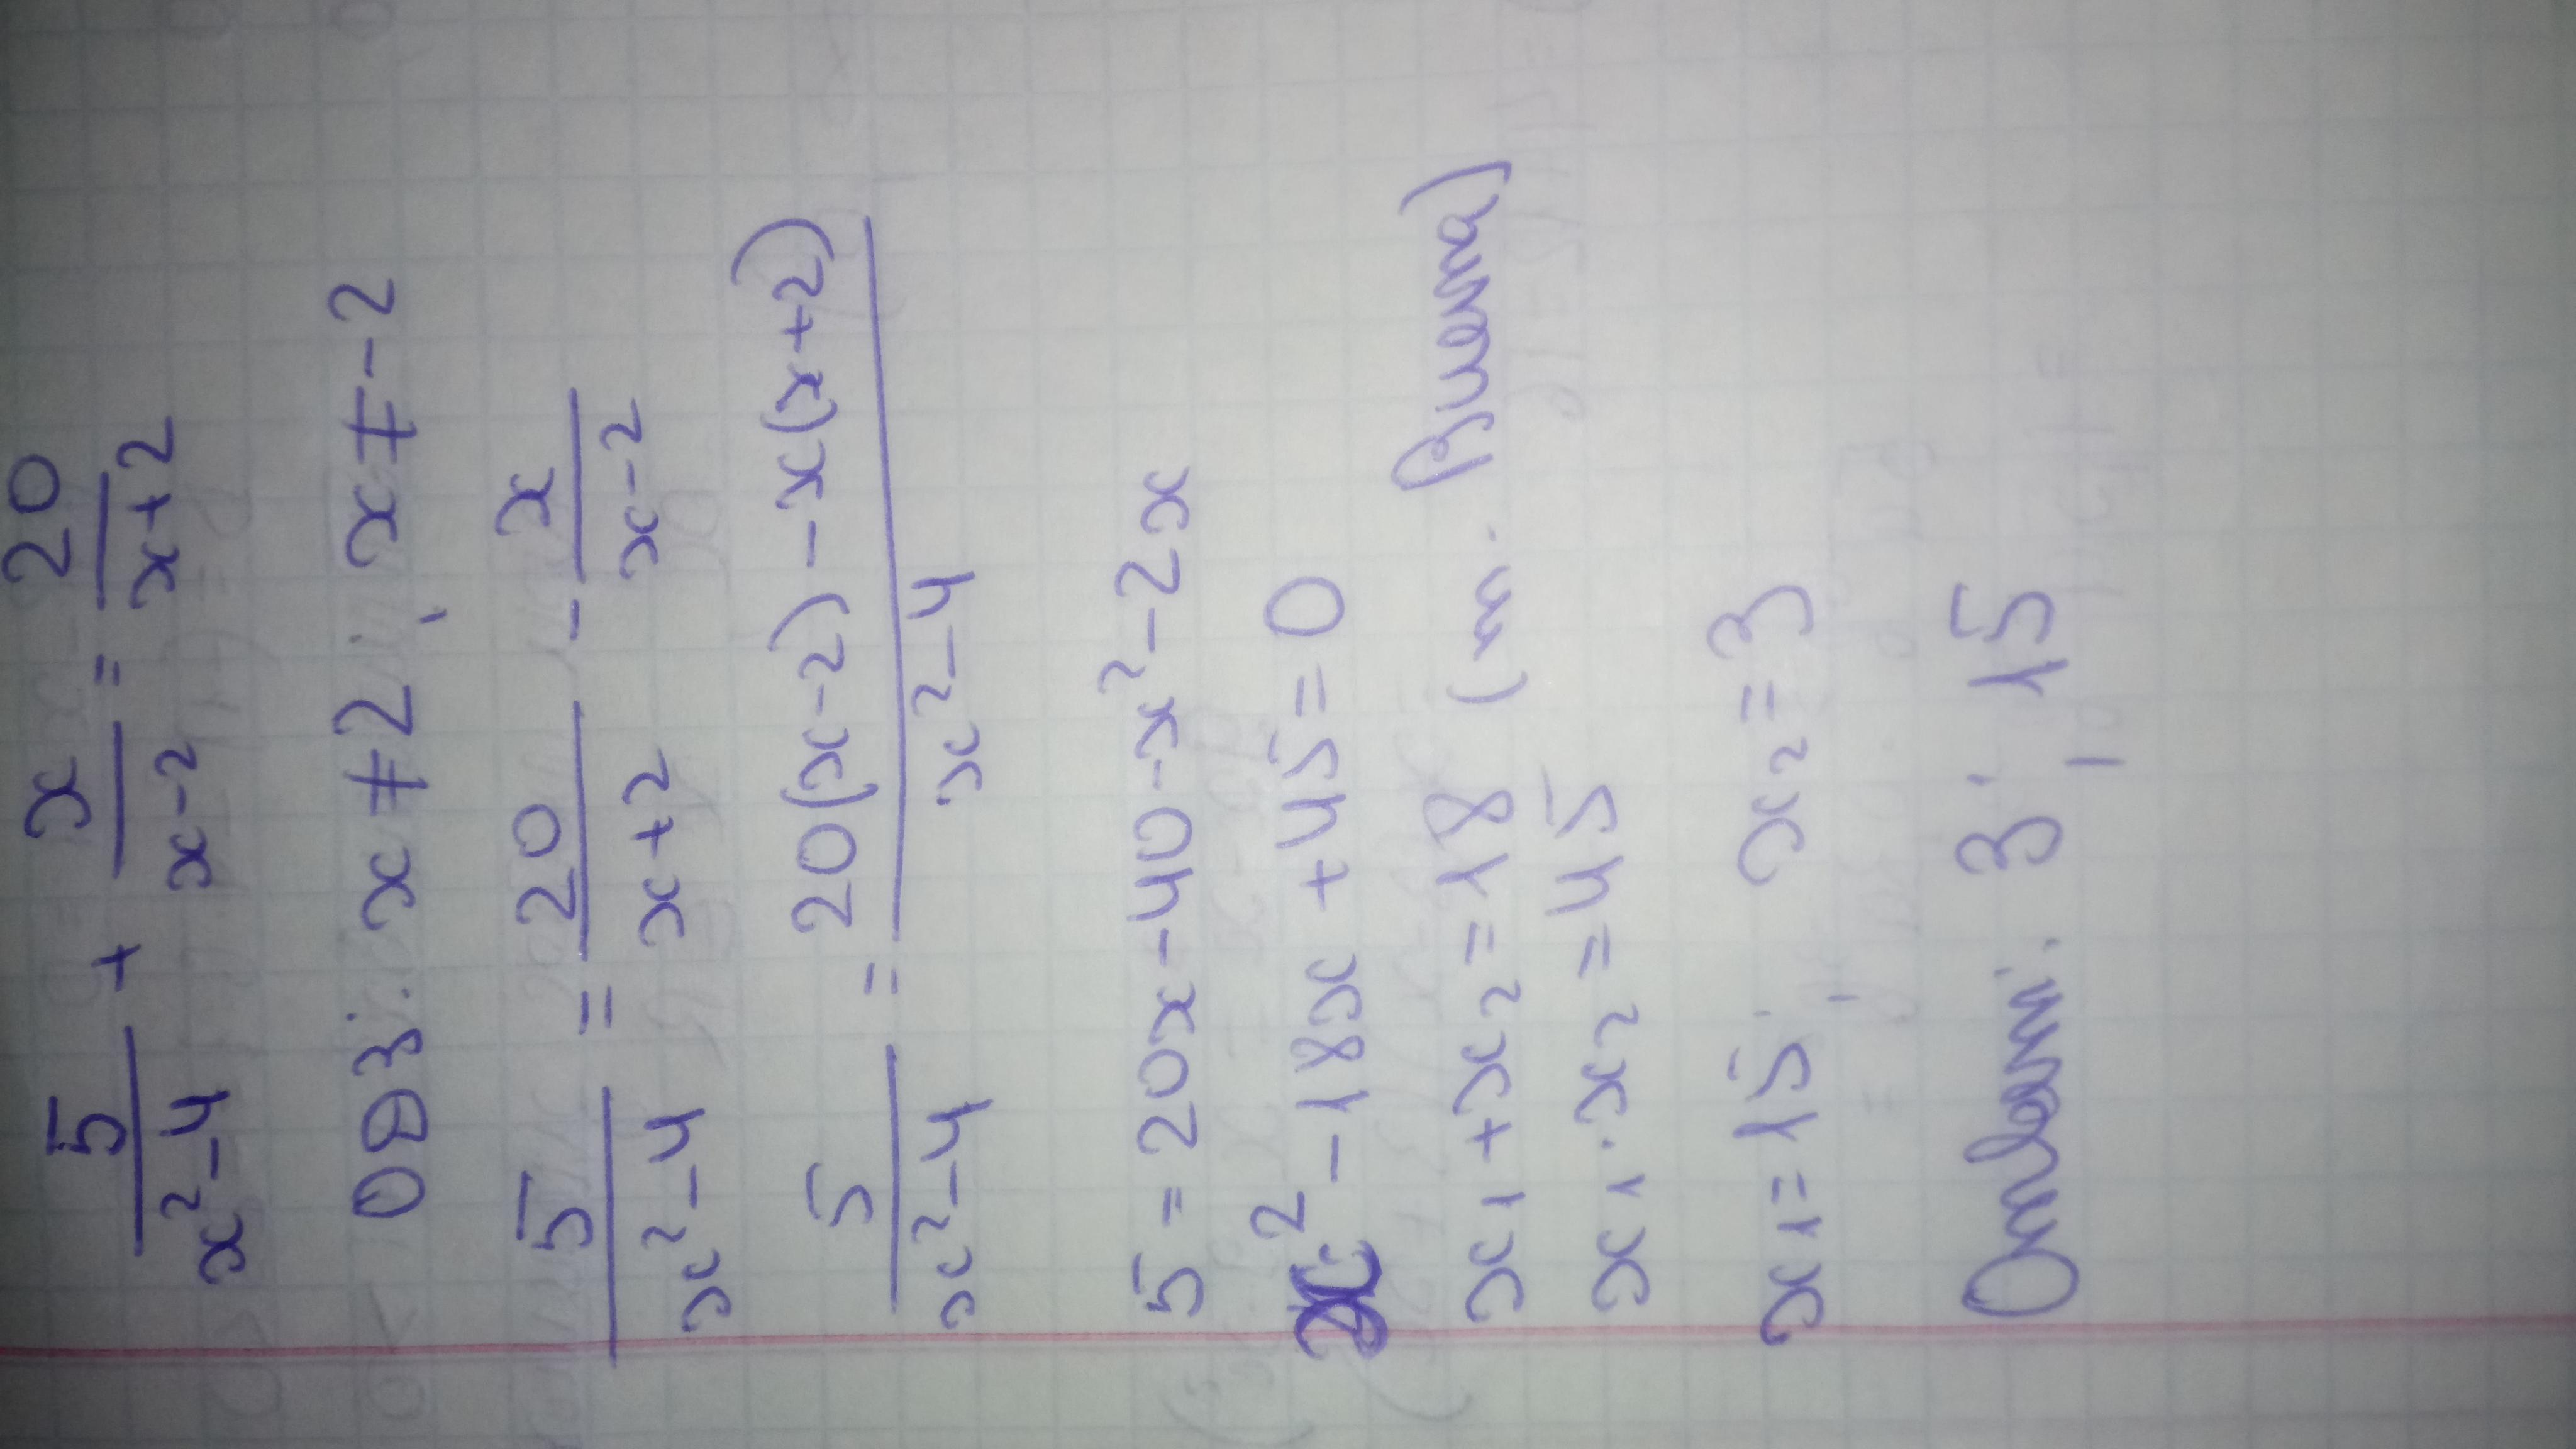 5/(x²-4) + x/(x-2) = 20/(x+2)
ОДЗ: x≠2; x≠-2
5/(x²-4) = 20/(x+2) - x/(x-2)
5/(x²-4) = (20(x-2)-x(x+2))/(x²-4)
5=20x-40-x²-2x
x²-18x+45=0
x1+x2=18 (т. Виета)
x1·x2=45
x1=15; x2=3
Ответ: 3; 15